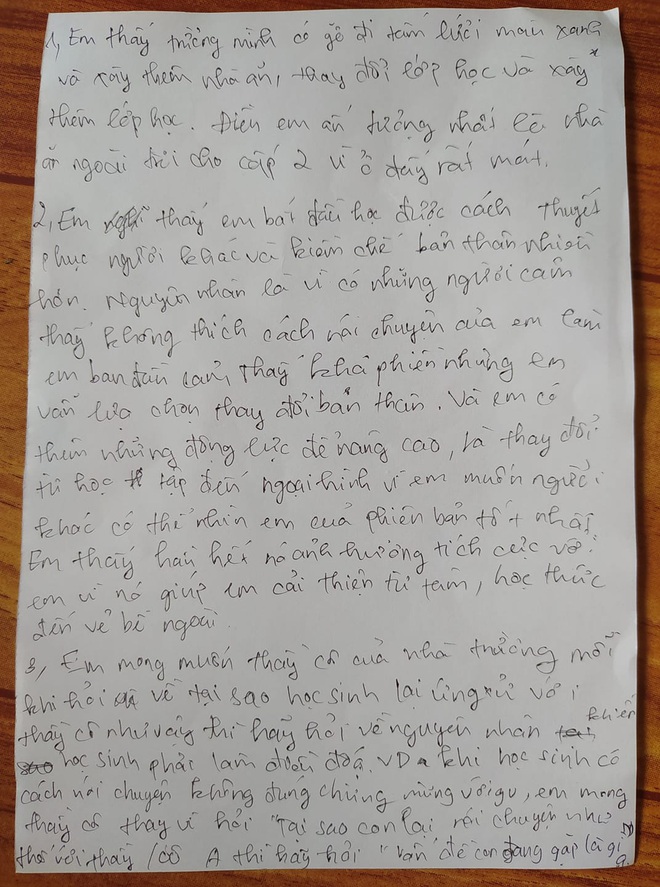 1, Em thấy trường mình có gỡ đi tấm lưới màu xanh
và xây thêm nhà ăn, thay đổi lớp học và xây
thêm lớp học. Điều em ấn tượng nhất là nhà
ăn ngoài trời cho cấp 2 vì ở đấy rất mát.
2, Em thấy em bắt đầu học được cách thuyết
phục người khác và kiềm chế bản thân nhiều
hơn. Nguyên nhân là vì có những người cảm
thấy không thích cách nói chuyện của em làm
em ban đầu cảm thấy khá phiền nhưng em
vẫn lựa chọn thay đổi bản thân. Và em có
thêm những động lực để nâng cao, là thay đổi
từ học tập đến ngoại hình vì em muốn người
khác có thể nhìn em của phiên bản tốt nhất
Em thấy hầu hết nó ảnh hưởng tích cực với
em vì nó giúp em cải thiện từ tâm, học thức
đến vẻ bề ngoài
3, Em mong muốn thầy cô của nhà trường mỗi
khi hỏi về tại sao học sinh lại ứng xử với
thầy cô như vậy thì hãy hỏi về nguyên nhân khiến
học sinh phải làm điều đó. VD khi học sinh có
cách nói chuyện không đúng chừng mừng với gv, em mong
thầy cô thay vì hỏi "Tại sao con lại nói chuyện như
thế với thầy / cô A thì hãy hỏi "vấn đề con đang gặp là gì